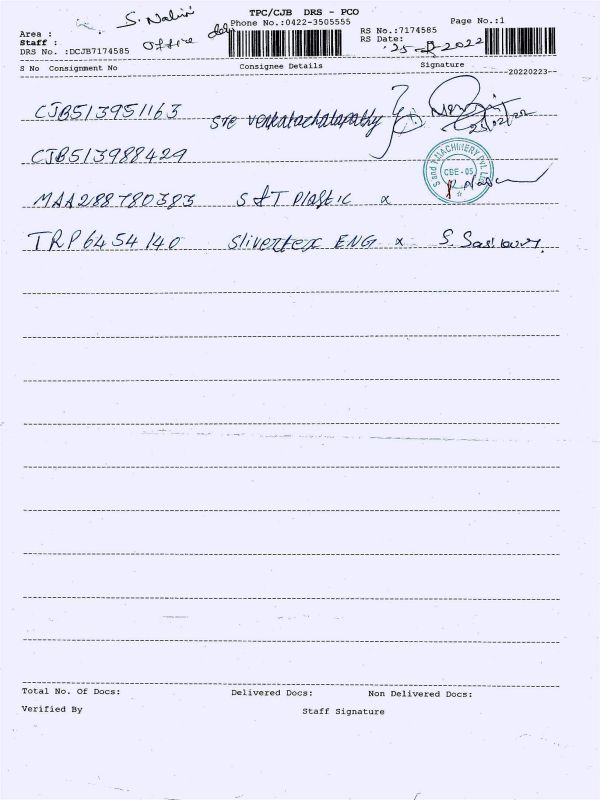 S. Nalini TPC/CJB DRS - PCO
Area : Phone No.:0422-3505555 RS No.:7174585 Page No.:1
Staff : Office RS Date: 25-2-2022
DRS No. :DCJB7174585
S No Consignment No Consignee Details Signature
20220223
CJB513951163 sre venkatachalapathy 25/02/22
CJB513988429
S and T MACHINERY Pvt. Ltd. CBE - 05
MAA288780383 S &T Plastic x
TRP6454140 Slivertex ENG x S.
Total No. Of Docs: Delivered Docs: Non Delivered Docs:
Verified By Staff Signature